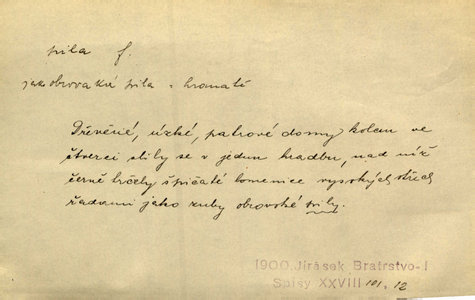 pila f.
jako obrovská pila - hromadě
Dřevěné, úzké, patrové domy kolem ve
čtverci slily se v jednu hradbu, nad níž
černě trčely špičaté lomenice vysokých střech
řadami jako zuby obrovské pily.
1900 Jirásek Bratrstvo-I
Spisy XXVIII 101, 12